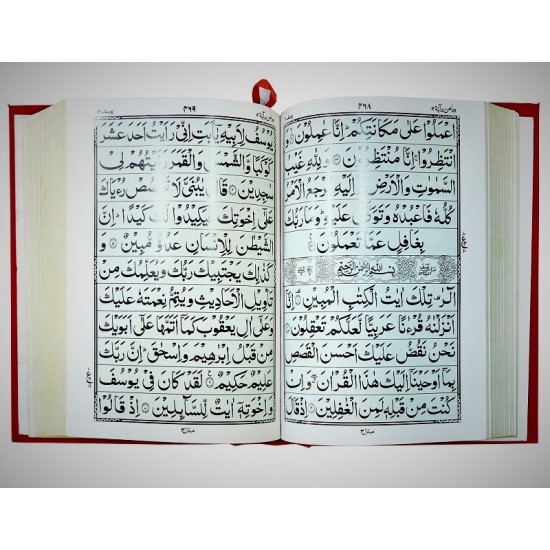 ومامن دآبة ۱۲
۳۶۸
اعْمَلُوْا عَلٰى مَكَانَتِكُمْ ؕ اِنَّا عٰمِلُوْنَ ۙ وَ
انْتَظِرُوْا ۚ اِنَّا مُنْتَظِرُوْنَ ۞ وَلِلّٰهِ غَيْبُ
السَّمٰوٰتِ وَالْاَرْضِ وَاِلَيْهِ يُرْجَعُ الْاَمْرُ
كُلُّهٗ فَاعْبُدْهُ وَتَوَكَّلْ عَلَيْهِ ؕ وَمَا رَبُّكَ
بِغَافِلٍ عَمَّا تَعْمَلُوْنَ ۞
بِسْمِ اللّٰهِ الرَّحْمٰنِ الرَّحِيْمِ
الٓرٰ ۫ تِلْكَ اٰيٰتُ الْكِتٰبِ الْمُبِيْنِ ۞ اِنَّاۤ
اَنْزَلْنٰهُ قُرْءٰنًا عَرَبِيًّا لَّعَلَّكُمْ تَعْقِلُوْنَ ۞
نَحْنُ نَقُصُّ عَلَيْكَ اَحْسَنَ الْقَصَصِ
بِمَاۤ اَوْحَيْنَاۤ اِلَيْكَ هٰذَا الْقُرْاٰنَ ۖ وَاِنْ
كُنْتَ مِنْ قَبْلِهٖ لَمِنَ الْغٰفِلِيْنَ ۞ اِذْ قَالَ
منزل ۳
ومامن دآبة ۱۲
۳۶۹
یوسف ۱۲
يُوْسُفُ لِاَبِيْهِ يٰۤاَبَتِ اِنِّيْ رَاَيْتُ اَحَدَ عَشَرَ
كَوْكَبًا وَّالشَّمْسَ وَالْقَمَرَ رَاَيْتُهُمْ لِيْ
سٰجِدِيْنَ ۞ قَالَ يٰبُنَيَّ لَا تَقْصُصْ رُءْيَاكَ
عَلٰۤى اِخْوَتِكَ فَيَكِيْدُوْا لَكَ كَيْدًا ؕ اِنَّ
الشَّيْطٰنَ لِلْاِنْسَانِ عَدُوٌّ مُّبِيْنٌ ۞ وَ
كَذٰلِكَ يَجْتَبِيْكَ رَبُّكَ وَيُعَلِّمُكَ مِنْ
تَاْوِيْلِ الْاَحَادِيْثِ وَيُتِمُّ نِعْمَتَهٗ عَلَيْكَ
وَعَلٰۤى اٰلِ يَعْقُوْبَ كَمَاۤ اَتَمَّهَا عَلٰۤى اَبَوَيْكَ
مِنْ قَبْلُ اِبْرٰهِيْمَ وَاِسْحٰقَ ؕ اِنَّ رَبَّكَ
عَلِيْمٌ حَكِيْمٌ ۞ لَقَدْ كَانَ فِيْ يُوْسُفَ
وَاِخْوَتِهٖۤ اٰيٰتٌ لِّلسَّآئِلِيْنَ ۞ اِذْ قَالُوْا
منزل ۳